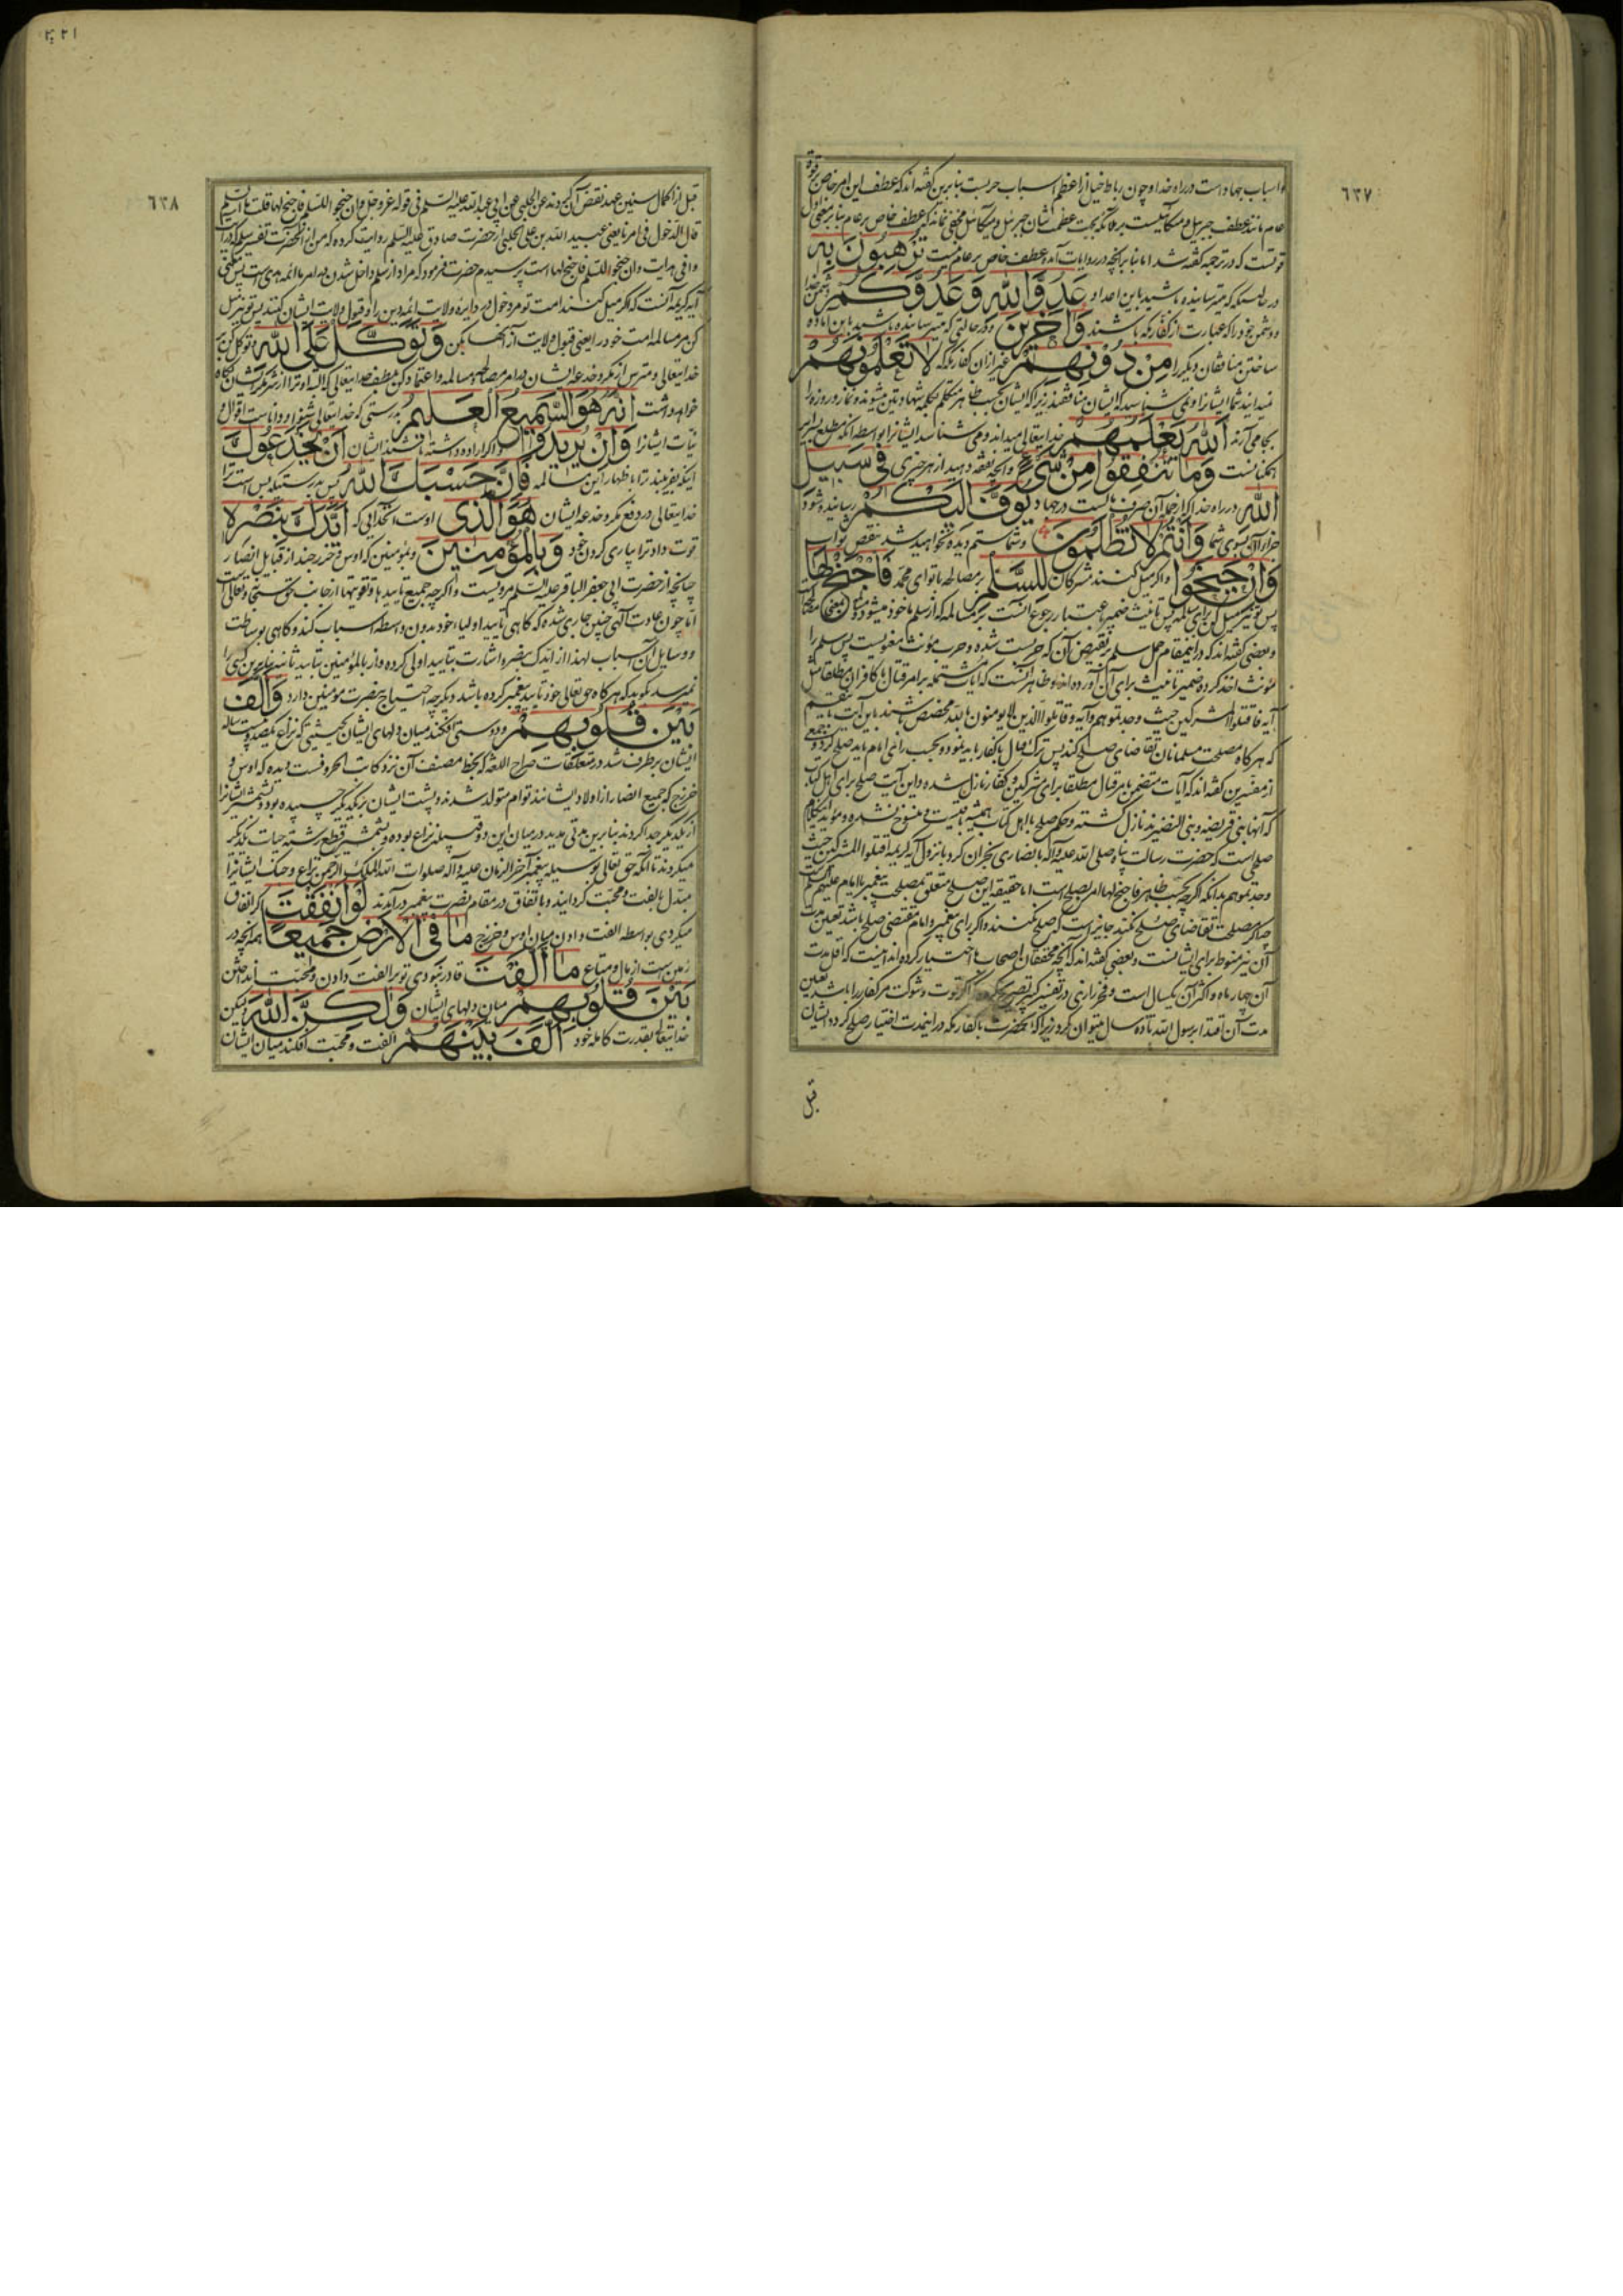 ٦٣٧
و اسباب جهاد است در راه خدا و چون رباط خیل از اعظم اسباب حربست بنابرین گفته‌اند که عطف این امر خاص بر قوة
عام مانند عطف جبرئیل و میکائیلست بر ملائکه بجهت عظمت شان جبرئیل و میکائیل مخفی نماند که عطف خاص بر عام بنا بر معنی اول
قوتست که در ترجمه گفته شد اما بنا بر آنچه در روایات آمده عطف خاص بر عام نیست تُرْهِبُونَ بِهِ
در حالتیکه میترسانیده باشید باین اعداد عَدُوَّ اللّٰهِ وَعَدُوَّكُمْ دشمن خدا
و دشمن خود را که عبارت از کفار مکه باشند وَآخَرِينَ و در حالتی که میترسانیده باشید باین آماده
ساختن منافقان دیگر را مِنْ دُونِهِمْ غیر از آن کفار مکه لَا تَعْلَمُونَهُمْ
نمیدانید شما ایشانرا و نمی شناسید که ایشان منافقند زیرا که ایشان بحسب ظاهر متکلم بکلمه شهادتین میشوند و نماز و روزه را
بجا می آرند اَللّٰهُ يَعْلَمُهُمْ خدایتعالی میداند و می شناسد ایشانرا بواسطه آنکه مطلع بسرایر
همگنانست وَمَا تُنْفِقُوا مِنْ شَيْءٍ و آنچه نفقه دهید از هر چیزی فِي سَبِيلِ
اللّٰهِ در راه خدا که از جمله آن صرف مالست در جهاد يُوَفَّ إِلَيْكُمْ رسانیده شود
جزای آن بسوی شما وَأَنْتُمْ لَا تُظْلَمُونَ و شما ستم دیده نخواهید شد بنقص ثواب
وَإِنْ جَنَحُوا و اگر میل کنند مشرکان لِلسَّلْمِ بر مصالحه با تو ای محمد فَاجْنَحْ لَهَا
پس تو نیز میل کن برای مسالمه پس تانیث ضمیر باعتبار رجوع آنست بر مسالمه که از سلم ماخوذ میشود
و بعضی گفته‌اند که در اینمقام حمل سلم بر نقیض آن که حربست شده و حرب مؤنث معنویست پس سلم را
مؤنث اخذ کرده ضمیر تانیث برای آن آورده‌اند و ظاهر آنست که آیات مشتمله بر امر قتال با کافران مطلقا مثل
آیه فاقتلوا المشرکین حیث وجدتموهم و آیه و قاتلوا الذین لا یومنون بالله مخصص باشند باین آیت باینطریق
که هر گاه مصلحت مسلمانان تقاضای صلح کند پس ترک قتال با کفار باید نمود و بحسب رای امام باید صلح کرد و جمعی
از مفسرین گفته‌اند که آیات متضمن بامر قتال مطلقا برای مشرکین و کفار نازل شده و این آیت صلح برای اهل کتاب
که آنها بنی قریضه و بنی النضیرند نازل گشته و حکم صلح با اهل کتاب همیشه باقیست و منسوخ نشده و مؤید اینکلام
صلحی است که حضرت رسالت پناه صلی الله علیه و آله با نصاری نجران کرد با نزول آیه کریمه اقتلوا المشرکین حیث
وجدتموهم بدانکه اگر چه بحسب ظاهر فاجنح لها امر بصلح است اما حقیقه این صلح متعلق بمصلحت پیغمبر یا امام علیهم السلام است
چه اگر مصلحت تقاضای صلح نکند جایز است که صلح نکنند و اگر رای پیغمبر و امام مقتضی صلح باشد تعیین مدت
آن نیز منوط برای ایشانست و بعضی گفته‌اند که آنچه محققان اصحاب ما اختیار کرده‌اند اینست که اقل مدت
آن چهار ماه و اکثر آن یکسال است و فخر رازی در تفسیر کبیر تصریح کرده که اگر قوت و شوکت مر کفار را باشد تعیین
مدت آن اقتدا برسول الله تا ده سال میتوان کرد زیرا که آنحضرت با کفار مکه در اینمدت اختیار صلح کرد و ایشان
قبل
٦٣٨
قبل از اکمال سنین عهد نقض آن کردند عن الحلبی عن ابی عبدالله علیه السلم فی قوله عز و جل و ان جنحوا للسلم فاجنح لها قلت ما السلم
قال الدخول فی امرنا یعنی عبید الله بن علی الحلبی از حضرت صادق علیه السلم روایت کرده که من از آنحضرت تفسیر سلم که در
و افی هدایت و ان جنحوا للسلم فاجنح لها است پرسیدم حضرت فرمود که مراد از سلم داخل شدن در امر ما ائمه هدی است پس معنی
آیه کریمه آنست که اگر میل کنند امت تو مر دخول در دایره ولایت ائمه دین را و قبول ولایت ایشان کنند پس تو نیز میل
کن مر مسالمه امت خود را یعنی قبول ولایت از آنها بکن وَتَوَكَّلْ عَلَى اللّٰهِ و توکل کن بر
خدایتعالی و مترس از مکر و خدعه ایشان در امر مصالحه و مسالمه و اعتماد کن بلطف خدایتعالی که البته او ترا از شر مکر ایشان نگاه
خواهد داشت إِنَّهُ هُوَ السَّمِيعُ الْعَلِيمُ بدرستی که خدایتعالی شنوا و داناست اقوال و
نیات ایشانرا وَإِنْ يُرِيدُوا و اگر اراده داشته باشند ایشان أَنْ يَخْدَعُوكَ
اینکه بفریبند ترا باظهار این مسالمه فَإِنَّ حَسْبَكَ اللّٰهُ پس بدرستیکه بس است ترا
خدایتعالی در دفع مکر و خدعه ایشان هُوَ الَّذِي اوست آنخدایی که أَيَّدَكَ بِنَصْرِهِ
قوت داد ترا بیاری کردن خود وَبِالْمُؤْمِنِينَ و بمؤمنین که اوس و خزرجند از قبایل انصار
چنانچه از حضرت ابی جعفر الباقر علیه السلم مرویست و اگر چه جمیع تاییدها و تقویتها از جانب حق سبحانه و تعالی است
اما چون عادت الهی چنین جاری شده که گاهی تایید اولیاء خود بدون واسطه اسباب کند و گاهی بوساطت
و وسایل آن اسباب لهذا از ایدک بنصره اشارت بتایید اولی کرده و از بالمؤمنین بتایید ثانیه بنابرین کسی را
نمیرسد بگوید که هر گاه حق تعالی خود تایید پیغمبر کرده باشد دیگر چه احتیاج بنصرت مومنین دارد وَأَلَّفَ
بَيْنَ قُلُوبِهِمْ و دوستی افکند میان دلهای ایشان بحیثیتی که نزاع یکصد و بیست ساله
ایشان برطرف شد در متعلقات صراح اللغه که بخط مصنف آن نزد کاتب الحروفست دیده که اوس و
خزرج که جمیع انصار از اولاد ایشانند توام متولد شدند و پشت ایشان بر یکدیگر چسپیده بود و بشمشیر ایشانرا
از یکدیگر جدا کردند بنابرین مدتی مدید در میان این دو قبیله نزاع بوده و بشمشیر قطع رشته حیات یکدیگر
میکردند تا آنکه حق تعالی بوسیله پیغمبر آخر الزمان علیه و آله صلوات الله الملک الرحمن نزاع و جنگ ایشانرا
مبدل بالفت و محبت گردانید و باتفاق در مقام نصرت پیغمبر درآمدند لَوْ أَنْفَقْتَ اگر انفاق
میکردی بواسطه الفت دادن میان اوس و خزرج مَا فِي الْأَرْضِ جَمِيعًا همه آنچه در
زمین است از مال و متاع مَا أَلَّفْتَ قادر نبودی تو بر الفت دادن و محبت انداختن
بَيْنَ قُلُوبِهِمْ میان دلهای ایشان وَلٰكِنَّ اللّٰهَ و لیکن
خدایتعالی بقدرت کامله خود أَلَّفَ بَيْنَهُمْ الفت و محبت افکند میان ایشان